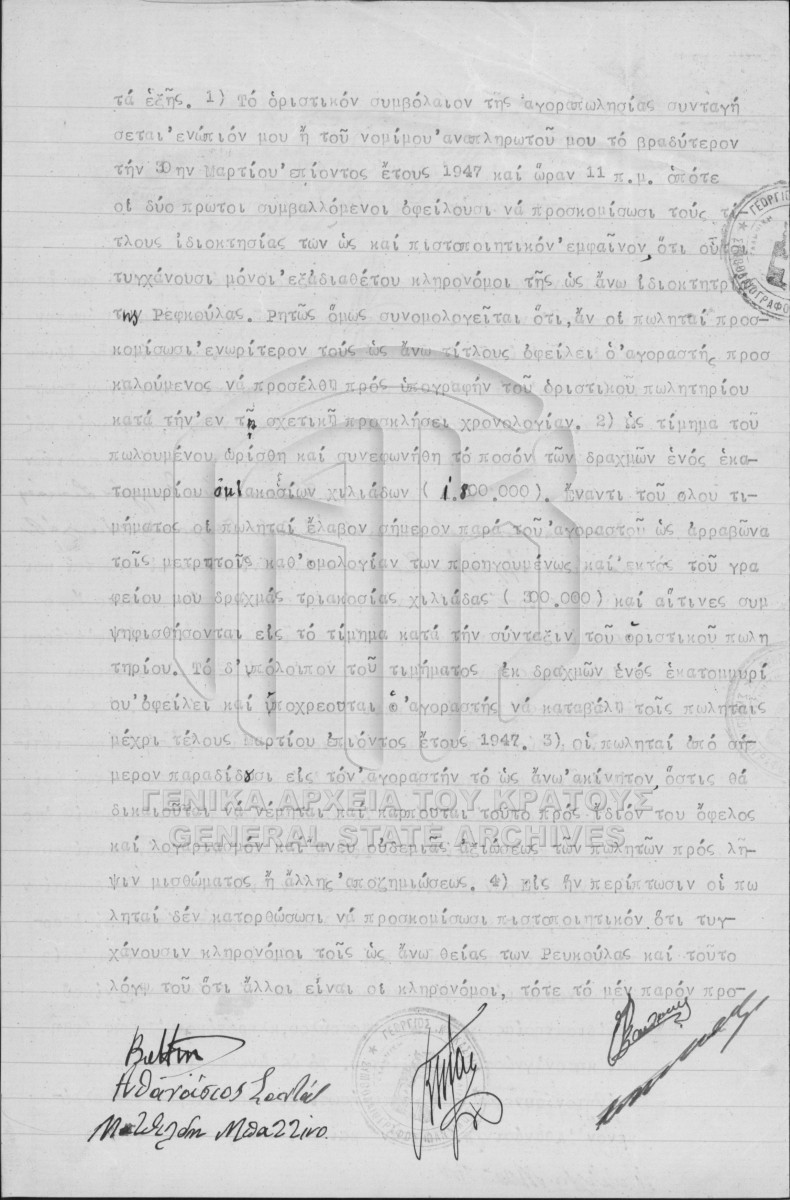 τά ἑξῆς. 1) Τό ὁριστικόν συμβόλαιον τῆς ἀγοραπωλησίας συνταγή
σεται ἐνώπιόν μου ἤ τοῦ νομίμου ἀναπληρωτοῦ μου τό βραδύτερον
τήν 30ην Μαρτίου ἐπίοντος ἔτους 1947 καί ὥραν 11 π.μ. ὁπότε
οἱ δύο πρῶτοι συμβαλλόμενοι ὀφείλουσι νά προσκομίσωσι τούς τί
τλους ἰδιοκτησίας των ὡς καί πιστοποιητικόν ἐμφαῖνον ὅτι οὗτοι
τυγχάνουσι μόνοι ἐξἀδιαθέτου κληρονόμοι τῆς ὡς ἄνω ἰδιοκτητρί
της Ρεφκούλας. Ρητῶς ὅμως συνομολογεῖται ὅτι, ἄν οἱ πωληταί προσ-
κομίσωσι ἐνωρίτερον τούς ὡς ἄνω τίτλους ὀφείλει ὁ ἀγοραστής προσ
καλούμενος νά προσέλθῃ πρός ὑπογραφήν τοῦ ὁριστικοῦ πωλητηρίου
κατά τήν ἐν τῇ σχετικῇ προσκλήσει χρονολογίαν. 2) Ὡς τίμημα τοῦ
πωλουμένου ὡρίσθη καί συνεφωνήθη τό ποσόν τῶν δραχμῶν ἑνός ἑκα-
τομμυρίου ὀκτακοσίων χιλιάδων ( 1.800.000). Ἔναντι τοῦ ὅλου τι-
μήματος οἱ πωληταί ἔλαβον σήμερον παρά τοῦ ἀγοραστοῦ ὡς ἀρραβῶνα
τοῖς μετρητοῖς καθ'ὁμολογίαν των προηγουμένως καί ἐκτός τοῦ γρα
φείου μου δραχμάς τριακοσίας χιλιάδας ( 300.000) καί αἵτινες συμ
ψηφισθήσονται εἰς τό τίμημα κατά τήν σύνταξιν τοῦ ὁριστικοῦ πωλη
τηρίου. Τό δ'ὑπόλοιπον τοῦ τιμήματος ἐκ δραχμῶν ἑνός ἑκατομμυρί
ου ὀφείλει καί ὑποχρεοῦται ὁ ἀγοραστής νά καταβάλῃ τοῖς πωληταῖς
μέχρι τέλους Μαρτίου ἐπιόντος ἔτους 1947. 3) οἱ πωληταί ἀπό σή-
μερον παραδίδουσι εἰς τόν ἀγοραστήν τό ὡς ἄνω ἀκίνητον, ὅστις θά
δικαιοῦται νά νέμηται καί καρποῦται τοῦτο πρός ἴδιόν του ὄφελος
ΓΕΝΙΚΑ ΑΡΧΕΙΑ ΤΟΥ ΚΡΑΤΟΥΣ
GENERAL STATE ARCHIVES
καί λογαριασμόν καί ἄνευ οὐδεμιᾶς ἀξιώσεως τῶν πωλητῶν πρός λῆ
ψιν μισθώματος ἤ ἄλλης ἀποζημιώσεως. 4) εἰς ἥν περίπτωσιν οἱ πω
ληταί δέν κατορθώσωσι νά προσκομίσωσι πιστοποιητικόν ὅτι τυγ-
χάνουσιν κληρονόμοι τοῖς ὡς ἄνω θείας των Ρευκούλας καί τοῦτο
λόγῳ τοῦ ὅτι ἄλλοι εἶναι οἱ κληρονόμοι, τότε τό μέν παρόν προ-
Ἀθανάσιος
Ματθίλδη Μπαττίνο